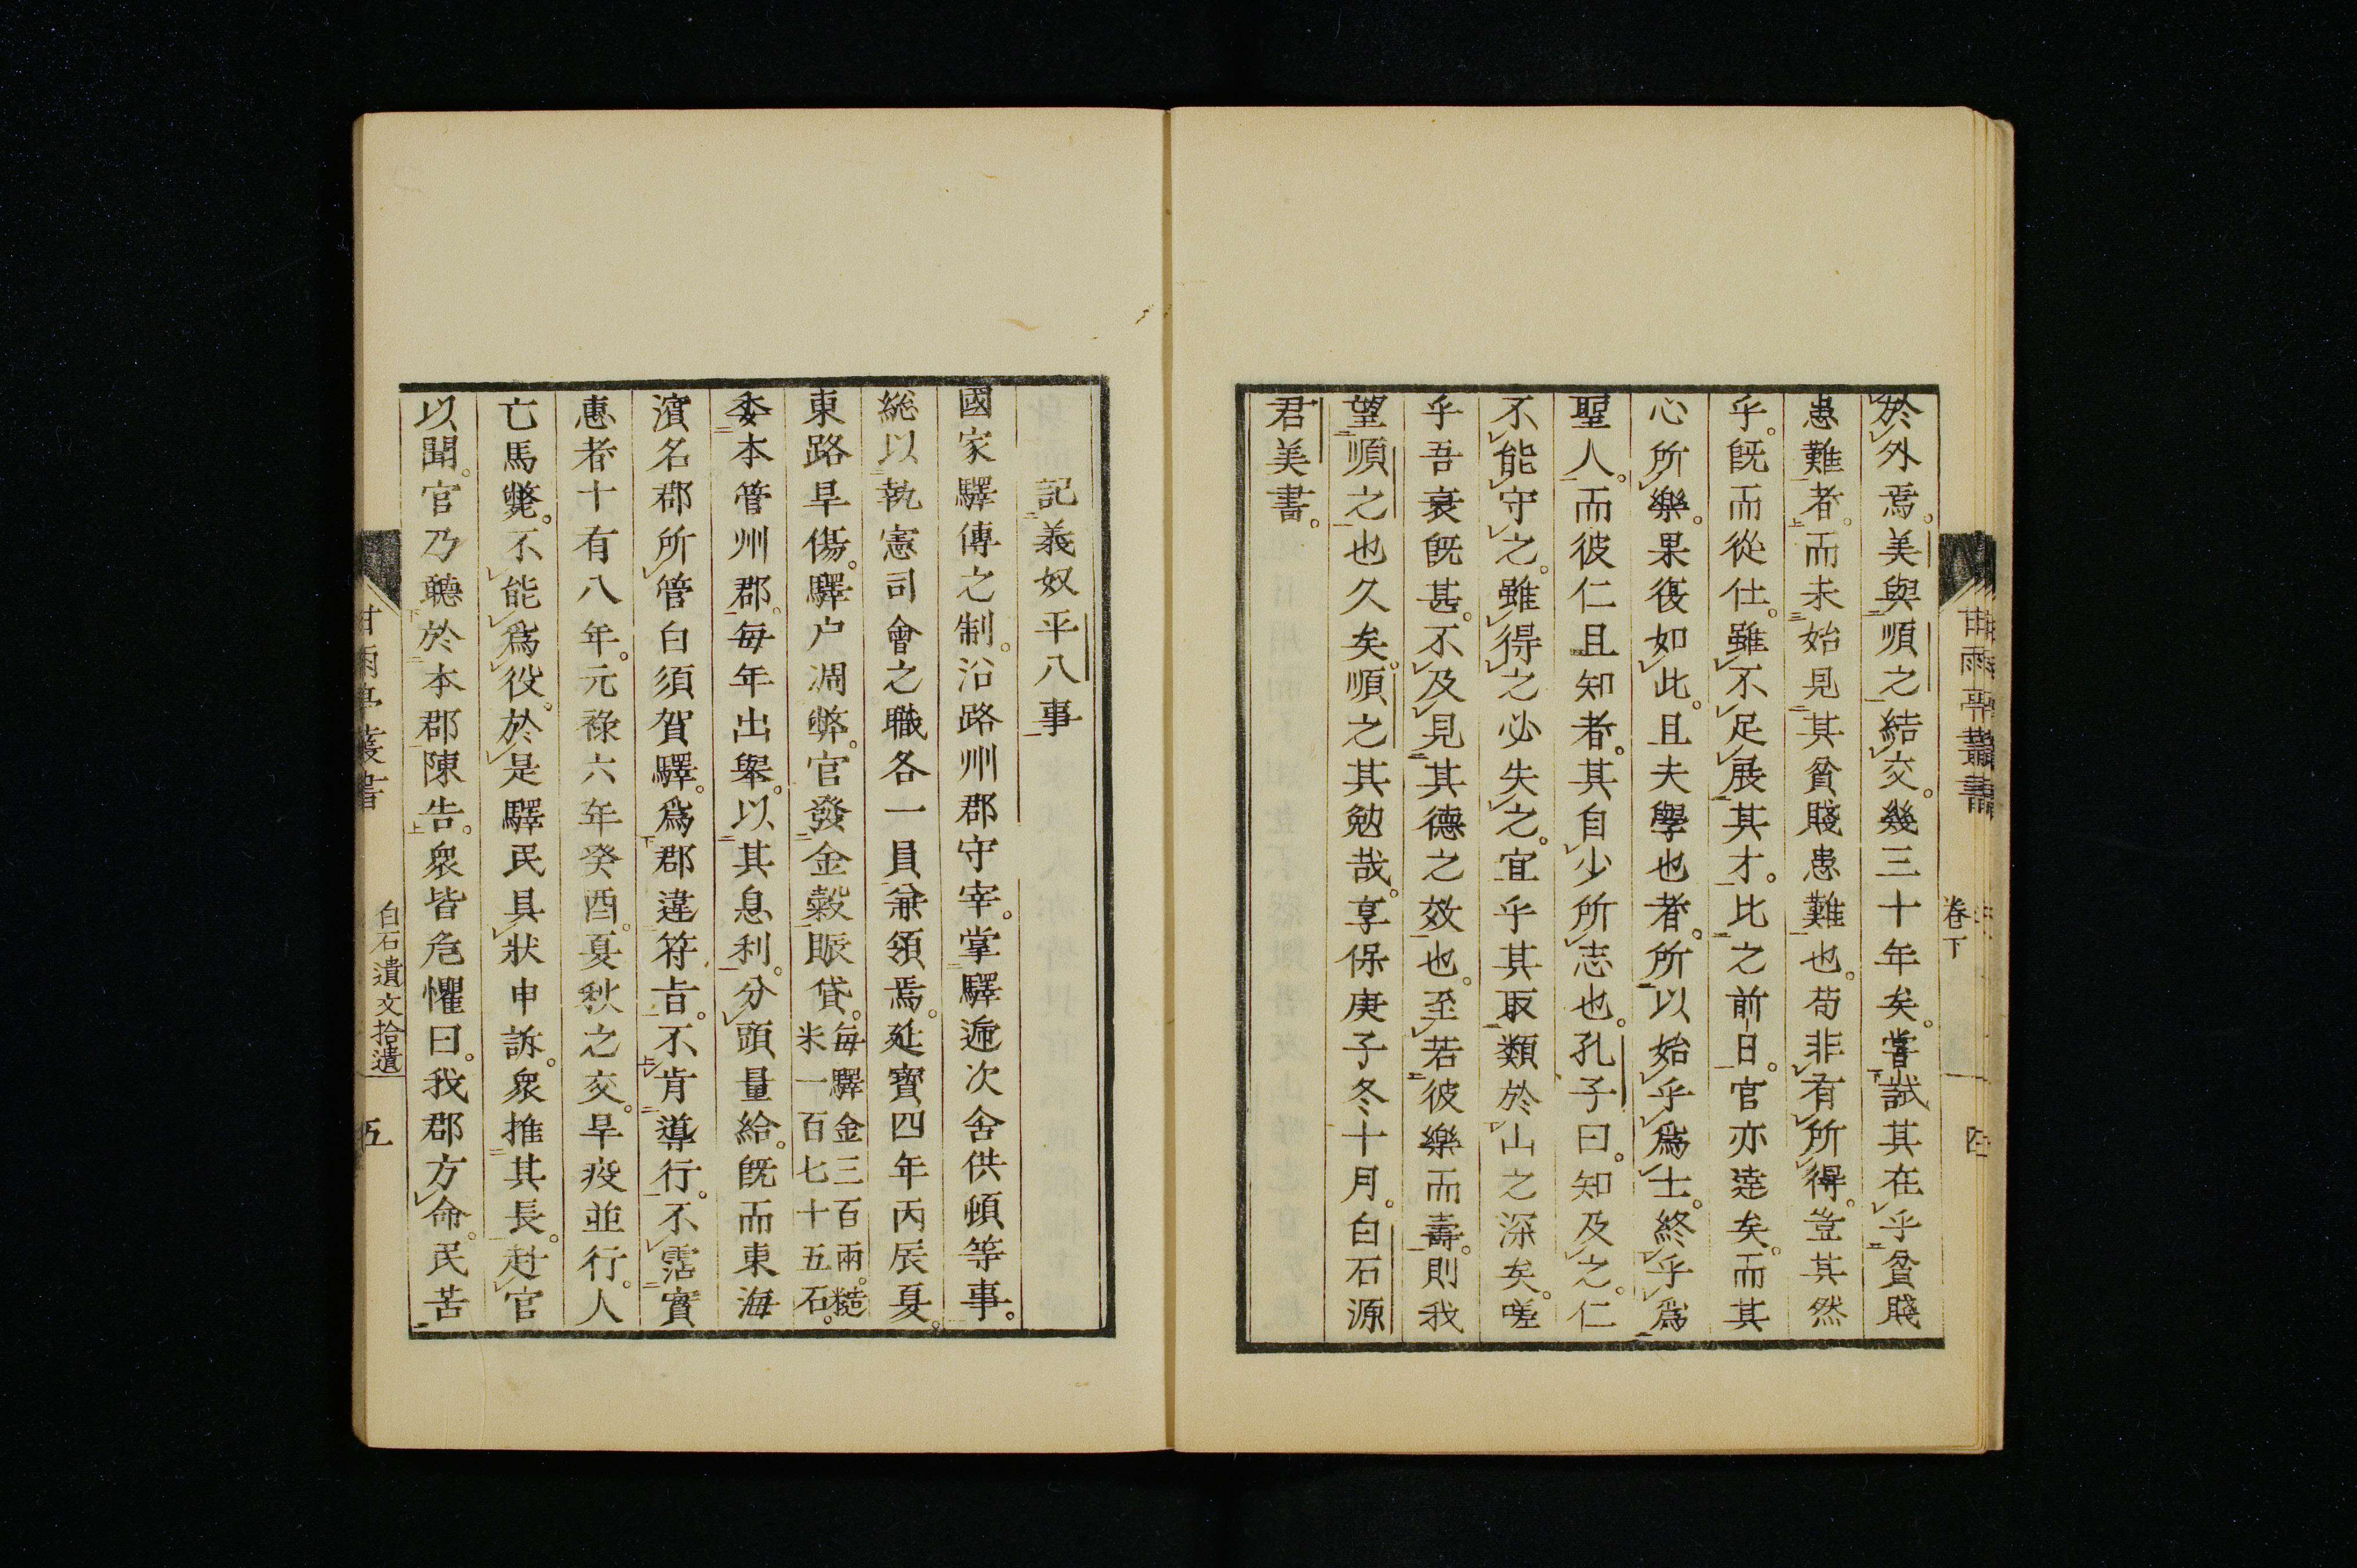 甘雨亭叢書
卷下
四
於外焉。美與順之結交。幾三十年矣。嘗試其在乎貧賤
患難者。而未始見其貧賤患難也。苟非有所得。豈其然
乎。旣而從仕。雖不足展其才。比之前日。官亦達矣。而其
心所樂。果復如此。且夫學也者。所以始乎爲士。終乎爲
聖人。而彼仁且知者。其自少所志也。孔子曰。知及之。仁
不能守之。雖得之必失之。宜乎其取類於山之深矣。嗟
乎吾衰旣甚。不及見其德之效也。至若彼樂而壽。則我
望順之也久矣。順之其勉哉。享保庚子冬十月。白石源
君美書。
記義奴平八事
國家驛傳之制。沿路州郡守宰。掌驛遞次舍供頓等事。
總以執憲司會之職各一員兼領焉。延寶四年丙辰夏。
東路旱傷。驛户凋弊。官發金穀賑貸。每驛金三百兩。糙米一百七十五石。
委本管州郡。每年出舉。以其息利。分頭量給。旣而東海
濱名郡所管白須賀驛。爲郡違符旨。不肯導行。不霑實
惠者十有八年。元祿六年癸酉。夏秋之交。旱疫並行。人
亡馬斃。不能爲役。於是驛民具狀申訴。衆推其長。赴官
以聞。官乃聽於本郡陳告。衆皆危懼曰。我郡方命。民苦
甘雨亭叢書
白石遺文拾遺
五